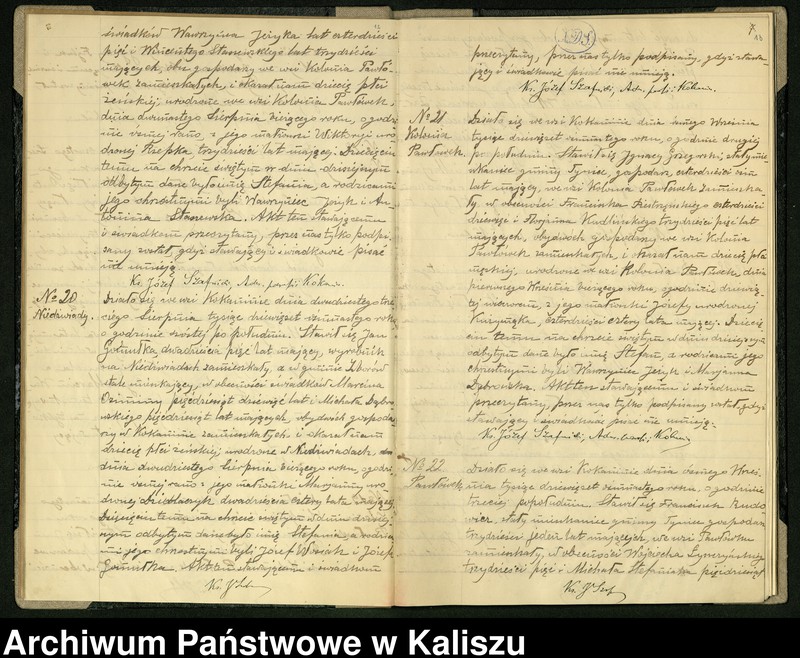 świadków Wawrzyna Jeżyka lat czterdzieści
pięć i Wincentego Stanewskiego lat trzydzieści
mających, obu gospodarzy we wsi Kolonia Pawłó-
wek zamieszkałych, i okazał nam dziecię płci
żeńskiej, urodzone we wsi Kolonia Pawłówek,
dnia dwunastego Sierpnia bieżącego roku, o godzi-
nie rano, z jego małżonki Wiktoryi uro-
dzonej Rzepka trzydzieści lat mającej. Dziecięciu
temu na chrzcie świętym w dniu dzisiejszym
odbytym dane było imię Stefania, a rodzicami
jego chrzestnymi byli Wawrzyniec Jeżyk i An-
tonina Stanewska. Akt ten stawającemu
i świadkom przeczytany, przez nas tylko podpi-
sany został, gdyż stawający i świadkowie pisać
nie umieją.
Ks. Józef Szafnicki, Adm. par.
No 20
Niedźwiady.
Działo się we wsi Kokaninie dnia dwudziestego
Sierpnia tysiąc dziewięćset roku
o godzinie szóstej po południu. Stawił się Jan
dwadzieścia pięć lat mający, wyrobnik
na Niedźwiadach zamieszkały, a w gminie Zborów
stale mieszkający, w obecności świadków Marcina
pięćdziesiąt dziewięć lat i Michała Dąbro-
wskiego pięćdziesiąt lat mających, obydwóch gospoda-
rzy w Kokaninie zamieszkałych i okazał nam
dziecię płci żeńskiej urodzone w Niedźwiadach
dnia dwudziestego Sierpnia bieżącego roku, o godzi-
nie rano z jego małżonki Maryanny uro-
dzonej dwadzieścia cztery lata mającej
Dziecięciu temu na chrzcie świętym w dniu dzisiej-
szym odbytym dane było imię Stefania, a rodzica-
mi jego chrzestnymi byli Józef Woźniak i Józefa
Akt ten stawającemu i świadkom
7
przeczytany, przez nas tylko podpisany, gdyż stawa-
jący i świadkowie pisać nie umieją.
Ks. Józef Szafnicki, Adm. par.
No 21
Kolonia
Pawłówek.
Działo się we wsi Kokaninie dnia Września
tysiąc dziewięćset roku, o godzinie drugiej
po południu. Stawił się Ignacy stały mie-
szkaniec gminy Tyniec, gospodarz czterdzieści
lat mający, we wsi Kolonia Pawłówek zamieszka-
ły, w obecności Franciszka czterdzieści
dziewięć i Floryana Kudlińskiego trzydzieści pięć lat
mających, obydwóch gospodarzy we wsi Kolonia
Pawłówek zamieszkałych, i okazał nam dziecię płci
męzkiej, urodzone we wsi Kolonia Pawłówek, dnia
pierwszego Września bieżącego roku, o godzinie dziewią-
tej wieczorem, z jego małżonki Józefy urodzonej
czterdzieści cztery lata mającej. Dziecię-
ciu temu na chrzcie świętym w dniu dzisiejszym
odbytym dane było imię Stefan, a rodzicami jego
chrzestnymi byli Wawrzyniec Jeżyk i Maryanna
Dąbrowska. Akt ten stawającemu i świadkom
przeczytany, przez nas tylko podpisany został, gdyż
stawający i świadkowie pisać nie umieją.
Ks. Józef Szafnicki, Adm.
No 22.
Pawłówek
Działo się we wsi Kokaninie dnia Wrze-
śnia tysiąc dziewięćset roku, o godzinie
trzeciej po południu. Stawił się Franciszek
stały mieszkaniec gminy Tyniec gospodarz
trzydzieści jeden lat mający, we wsi Pawłówku
zamieszkały, w obecności Wojciecha
trzydzieści pięć i Michała Stefaniaka pięćdziesiąt
Archiwum Państwowe w Kaliszu